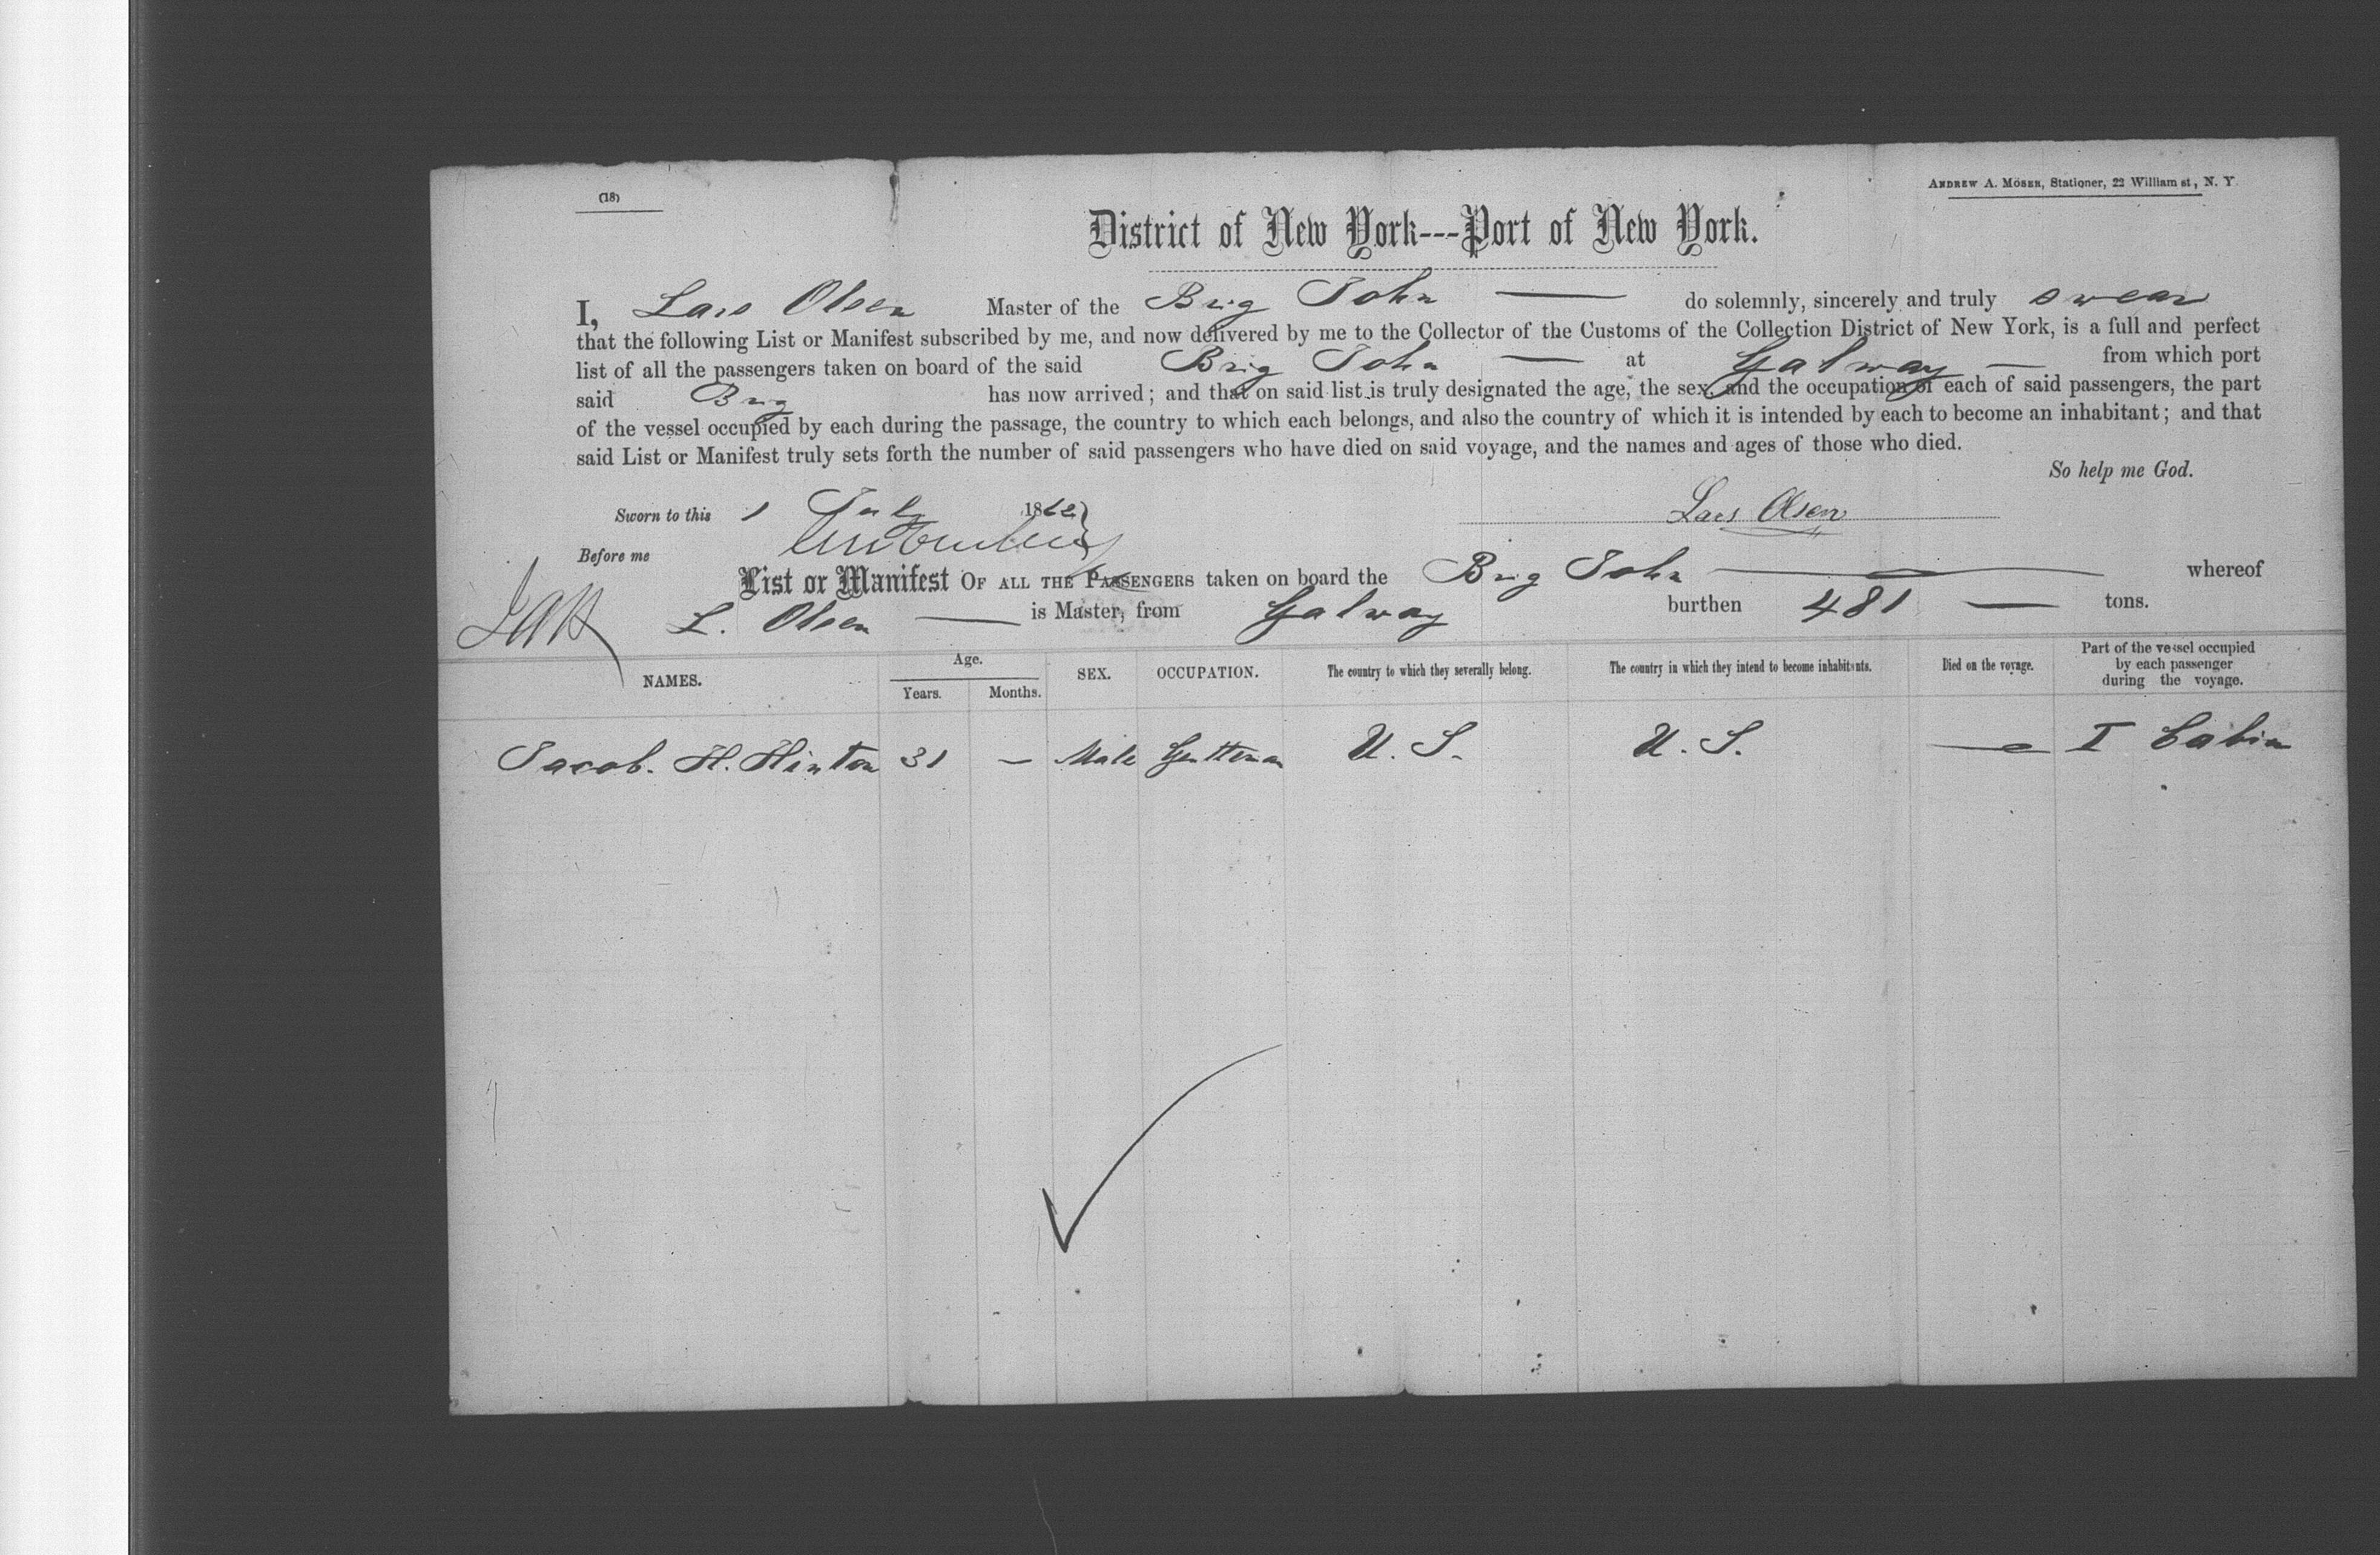 (18)
ANDREW A. MÖSER, Stationer, 22 William st, N. Y.
District of New York---Port of New York.
I, Lars Olsen Master of the Brig John — do solemnly, sincerely and truly swear
that the following List or Manifest subscribed by me, and now delivered by me to the Collector of the Customs of the Collection District of New York, is a full and perfect
list of all the passengers taken on board of the said Brig John — at Galway — from which port
said Brig has now arrived; and that on said list is truly designated the age, the sex, and the occupation of each of said passengers, the part
of the vessel occupied by each during the passage, the country to which each belongs, and also the country of which it is intended by each to become an inhabitant; and that
said List or Manifest truly sets forth the number of said passengers who have died on said voyage, and the names and ages of those who died.
So help me God.
Sworn to this 1 July 1862 } Lars Olsen
Before me
List or Manifest OF ALL THE PASSENGERS taken on board the Brig John — whereof
L. Olsen — is Master, from Galway burthen 481 — tons.
NAMES. Age. Years. Months. SEX. OCCUPATION. The country to which they severally belong. The country in which they intend to become inhabitants. Died on the voyage. Part of the vessel occupied by each passenger during the voyage.
Jacob. H. Hinton 31 — Male Gentleman U. S. U. S. — I Cabin